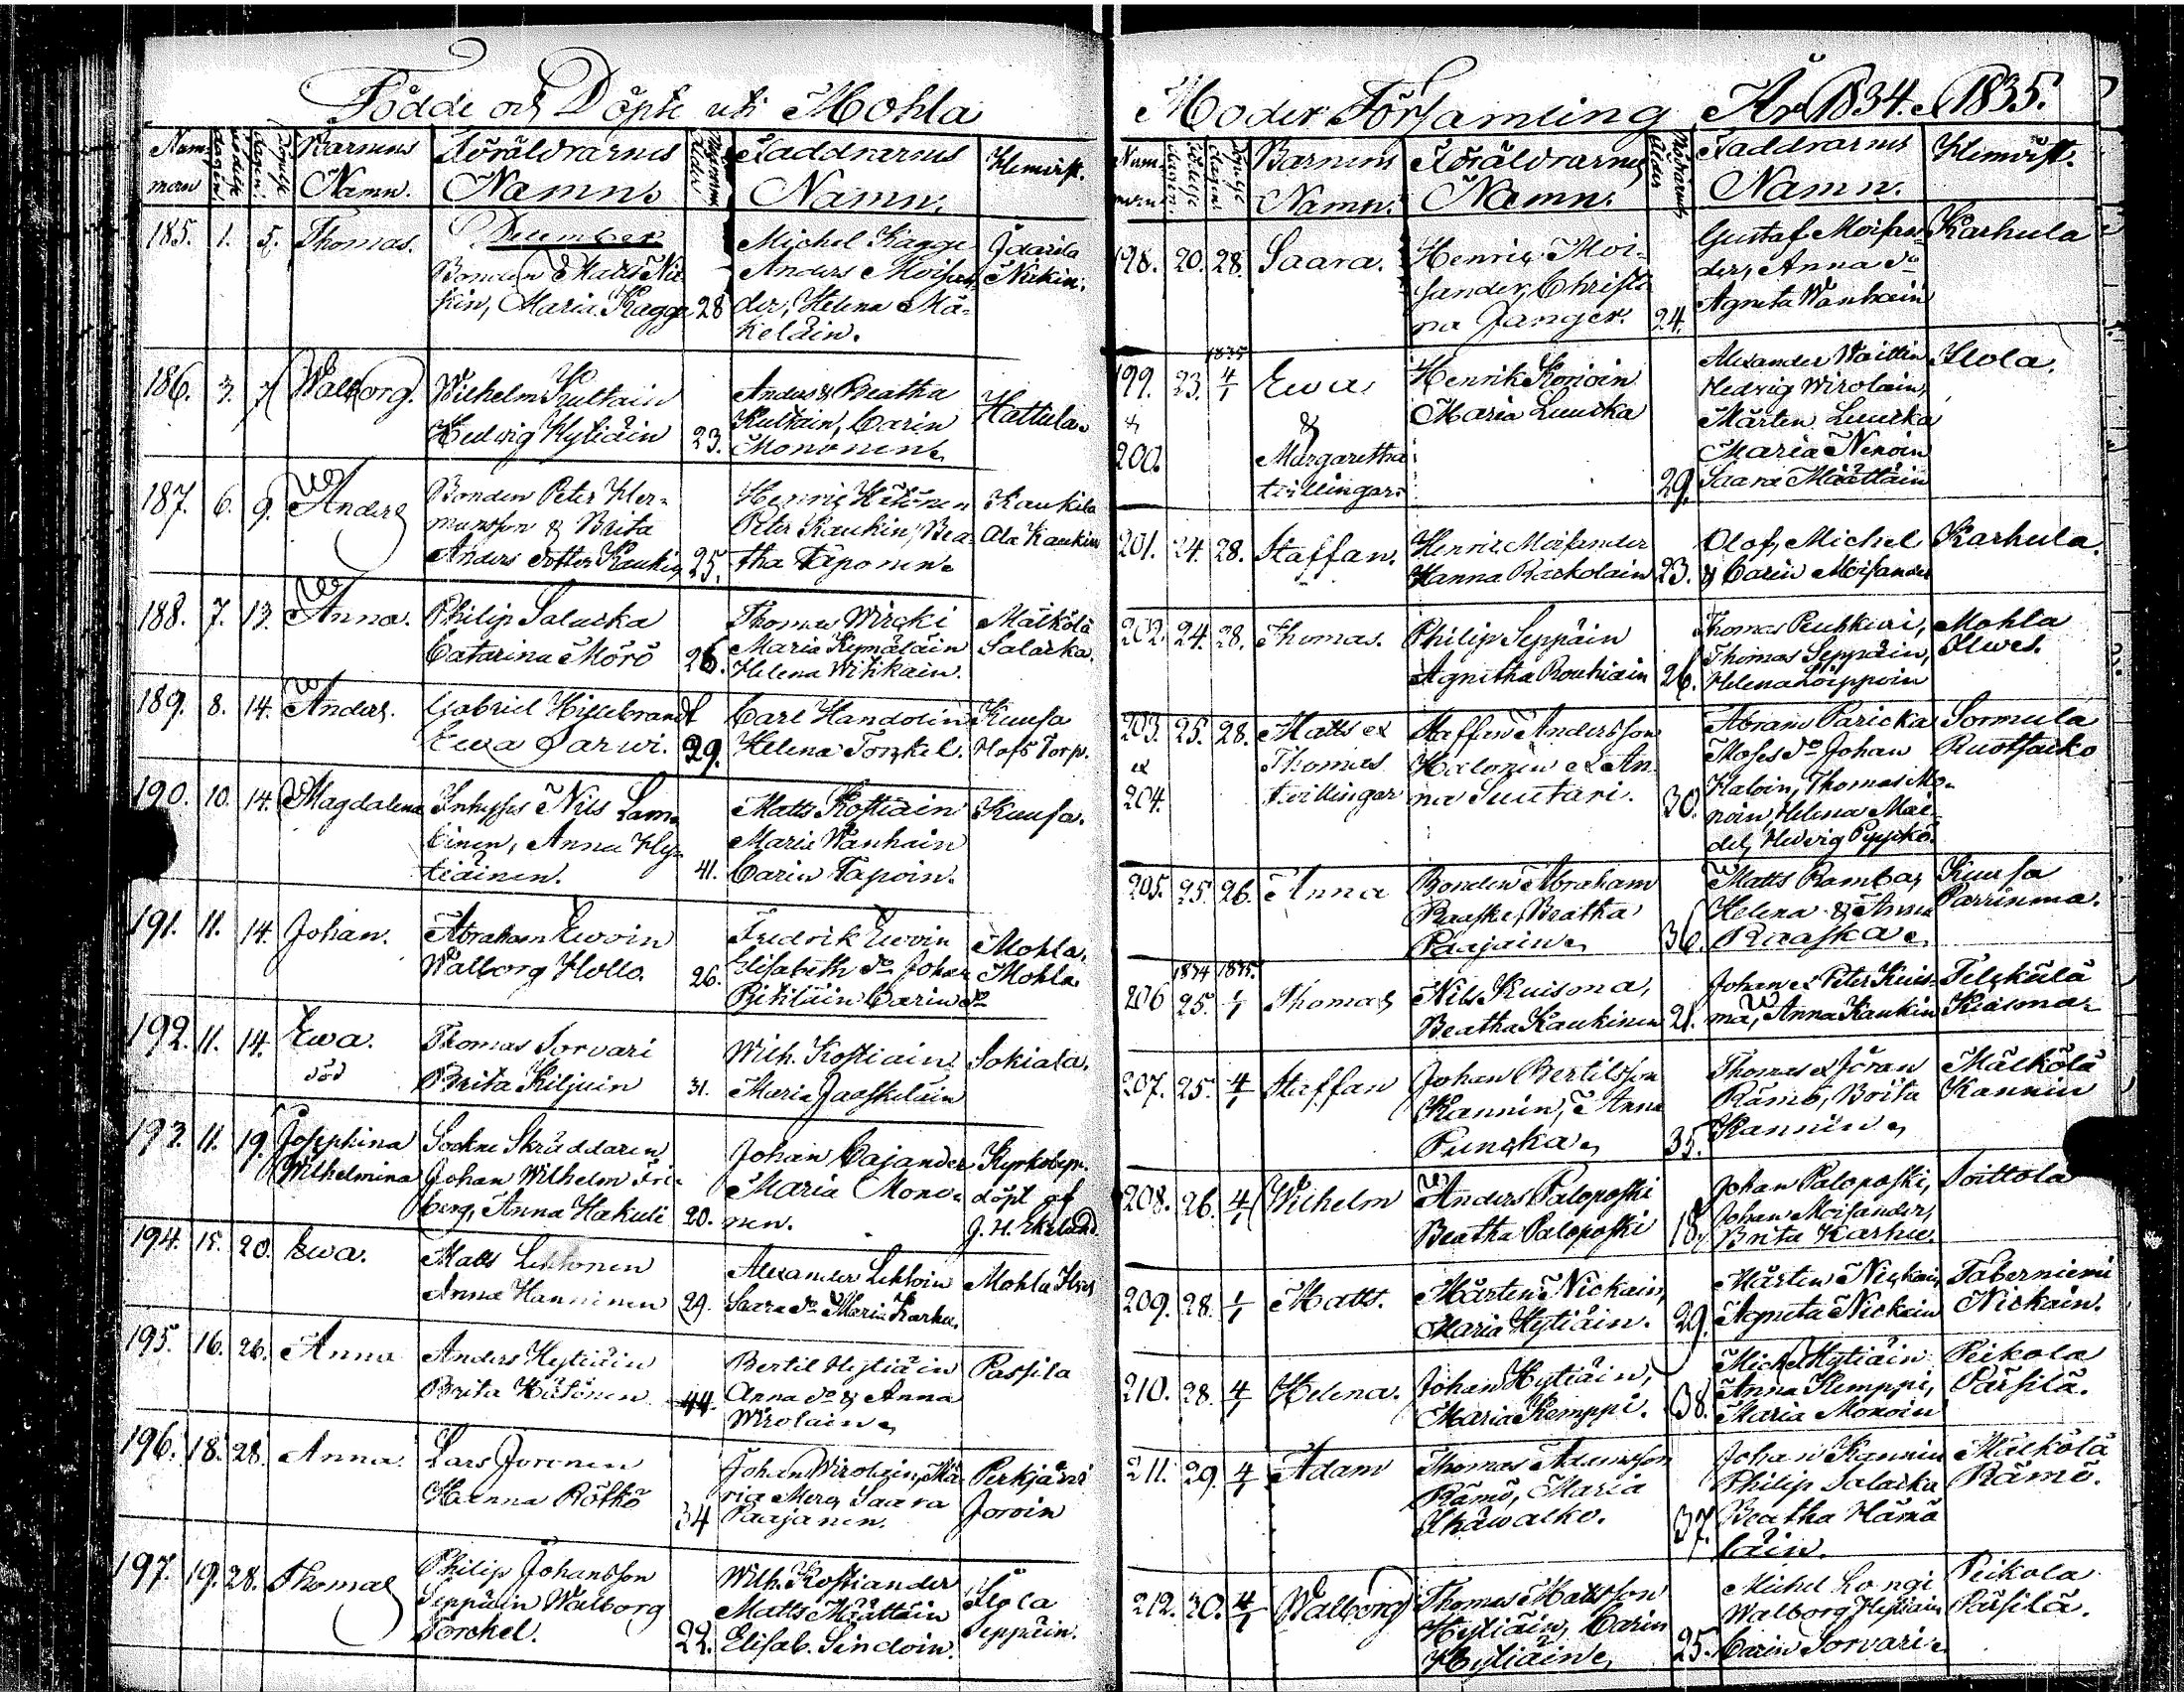 Födde och Döpte uti Mohla
Moder Församling År 1834. & 1835.
Num-
mern
Barnens
Namn.
Föräldrarnes
Namn.
Faddrarnes
Namn.
Hemvist.
185. 1. 5. Thomas.
December
Bonden Matts Nic
kin, Maria Kagge 28
Michel Kagge
Anders Moisan
der, Helena Mä-
keläin.
186. 3. 7 Walborg.
Wilhelm Kultain
Hedvig Hytiäin 23.
Anders & Beatha
Kultain, Carin
Mononen
Hattula
187. 6. 9. Anders
Bonden Peter Her-
mansson & Brita
Anders dotter Kaukin 25.
Peter Kaukin, Bea-
tha Taponen
Kaukila
Ala Kaukin
188. 7. 13. Anna.
Philip Salacka
Catarina Mörö 26.
Thomas
Maria Kymäläin
Helena Wihkain.
Mälkölä
Salacka.
189. 8. 14. Anders.
Gabriel Hillebrandt
Ewa Parwi. 29.
Carl Handolin
Helena Torckel.
Kuusa
Hofs Torp.
190. 10. 14. Magdalena
Inhyses Nils Lam-
binen, Anna Hy-
tiäinen. 41.
Matts Kostiain
Maria Wanhain
Carin Tapoin.
Kuusa.
191. 11. 14. Johan.
Abraham Ewoin
Walborg Hollo. 26.
Fredrik Ewoin
Elisabeth do Johan
Pitkäin Carin do
Mohla.
Mohla.
192. 11. 14. Ewa.
död
Thomas Sorvari
Brita Kiljuin 31.
Wilh. Kostiain
Maria Jaaskeläin
Sokiala.
193. 11. 19. Josephina
Wilhelmina
Sockne Skräddaren
Johan Wilhelm Fri-
berg, Anna Hakuli 20.
Johan Cajander
Maria Mono-
nen.
Kyrkobyn.
döpt af
J. H. Ekelund.
194. 15. 20. Ewa.
Matts Lehtonen
Anna Hanninen 29.
Alexander Lehtoin
Saara do Maria Karhu.
Mohla Ilves
195. 16. 26. Anna
Anders Hytiäin
Brita Hätönen 44.
Bertil Hytiäin
Anna do & Anna
Wirolain
Passila
196. 18. 28. Anna
Lars Joronen
Hanna Rötkö 34
Johan Wirolain, Ma-
ria Saara
Paajanen.
Perkjärvi
Joroin
197. 19. 28. Thomas
Philip Johansson
Seppäin Walborg
Torckel. 22.
Wilh. Kostiander
Matts Määttäin
Elisab. Sindoin.
Seppäin.
Num-
Barnens
Namn.
Föräldrarnes
Namn.
Faddrarnes
Namn.
Hemvist.
198. 20. 28. Saara.
Henric Moi-
sander, Christi
na Janger. 24.
Gustaf Moisan-
der, Anna do
Agneta Wanhain
Karhula
199. 23. 1835 4/1 Ewa
&
200.
&
Margaretha
tvillingar
Henrik Konoin
Maria Luucka 29.
Alexander Waittin
Hedvig Wirolain,
Mårten Luucka
Maria Nenoin
Saara Määttäin
Ilola.
201. 24. 28. Staffan.
Henric Moisander
Hanna Räikolain 23.
Olof, Michel
& Carin Moisander
Karhula.
202. 24. 28. Thomas.
Philip Seppäin
Agnetha Rouhiain 26.
Thomas Puckuri,
Thomas Seppäin,
Helena Loippoin
Mohla
Ilwes.
203. 25. 28. Matts et
et
204.
Thomas
tvillingar
Staffan Andersson
Halonen & An
na Suutari. 30.
Abram Paricka
Moses do Johan
Haloin, Thomas Mo-
noin, Helena Mai-
del, Hedvig Pyyckö.
Sormula
Ruotsaiko
205. 25. 26. Anna
Bonden Abraham
Raaska, Beatha
Paajain 36.
Matts Ramba,
Helena & Anna
Raaska
Kuusa
Parrinma.
206 1834 25. 1835. 1/1 Thomas
Nils Kuisma,
Beatha Kaukinen 21.
Johan et Peter Kuis-
ma, Anna Kaukin
Kuisma
207. 25. 4/1 Staffan
Johan Bertilsson
Kannin, Anna
Puncka 35.
Thomas & Jöran
Rämö, Brita
Kannin
Mälkölä
Kannin
208. 26. 4/1 Wilhelm
Anders Paloposki
Beatha Paloposki 18.
Johan Paloposki,
Johan Moisander,
Brita Karhu.
Soittola
209. 28. 1/1 Matts.
Mårten Nickain,
Maria Hytiäin. 29.
Mårten Nickain
Agneta Nickain
Taberniemi
Nickain.
210. 28. 4/1 Helena.
Johan Hytiäin,
Maria Kemppi. 38.
Michel Hytiäin
Anna Kemppi,
Maria Monoin
Peikola
Pärsilä.
211. 29. 4/1 Adam
Thomas Adamsson
Rämö, Maria
Ikäwalko. 37.
Johan Kannin
Philip Salacka
Beatha Hämä
läin.
Mälkölä
Rämö.
212. 30. 4/1 Walborg
Thomas Mattsson
Hytiäin, Carin
Hytiäin 25.
Michel Longi
Walborg Hytiäin
Carin Sorvari
Peikola
Päisilä.